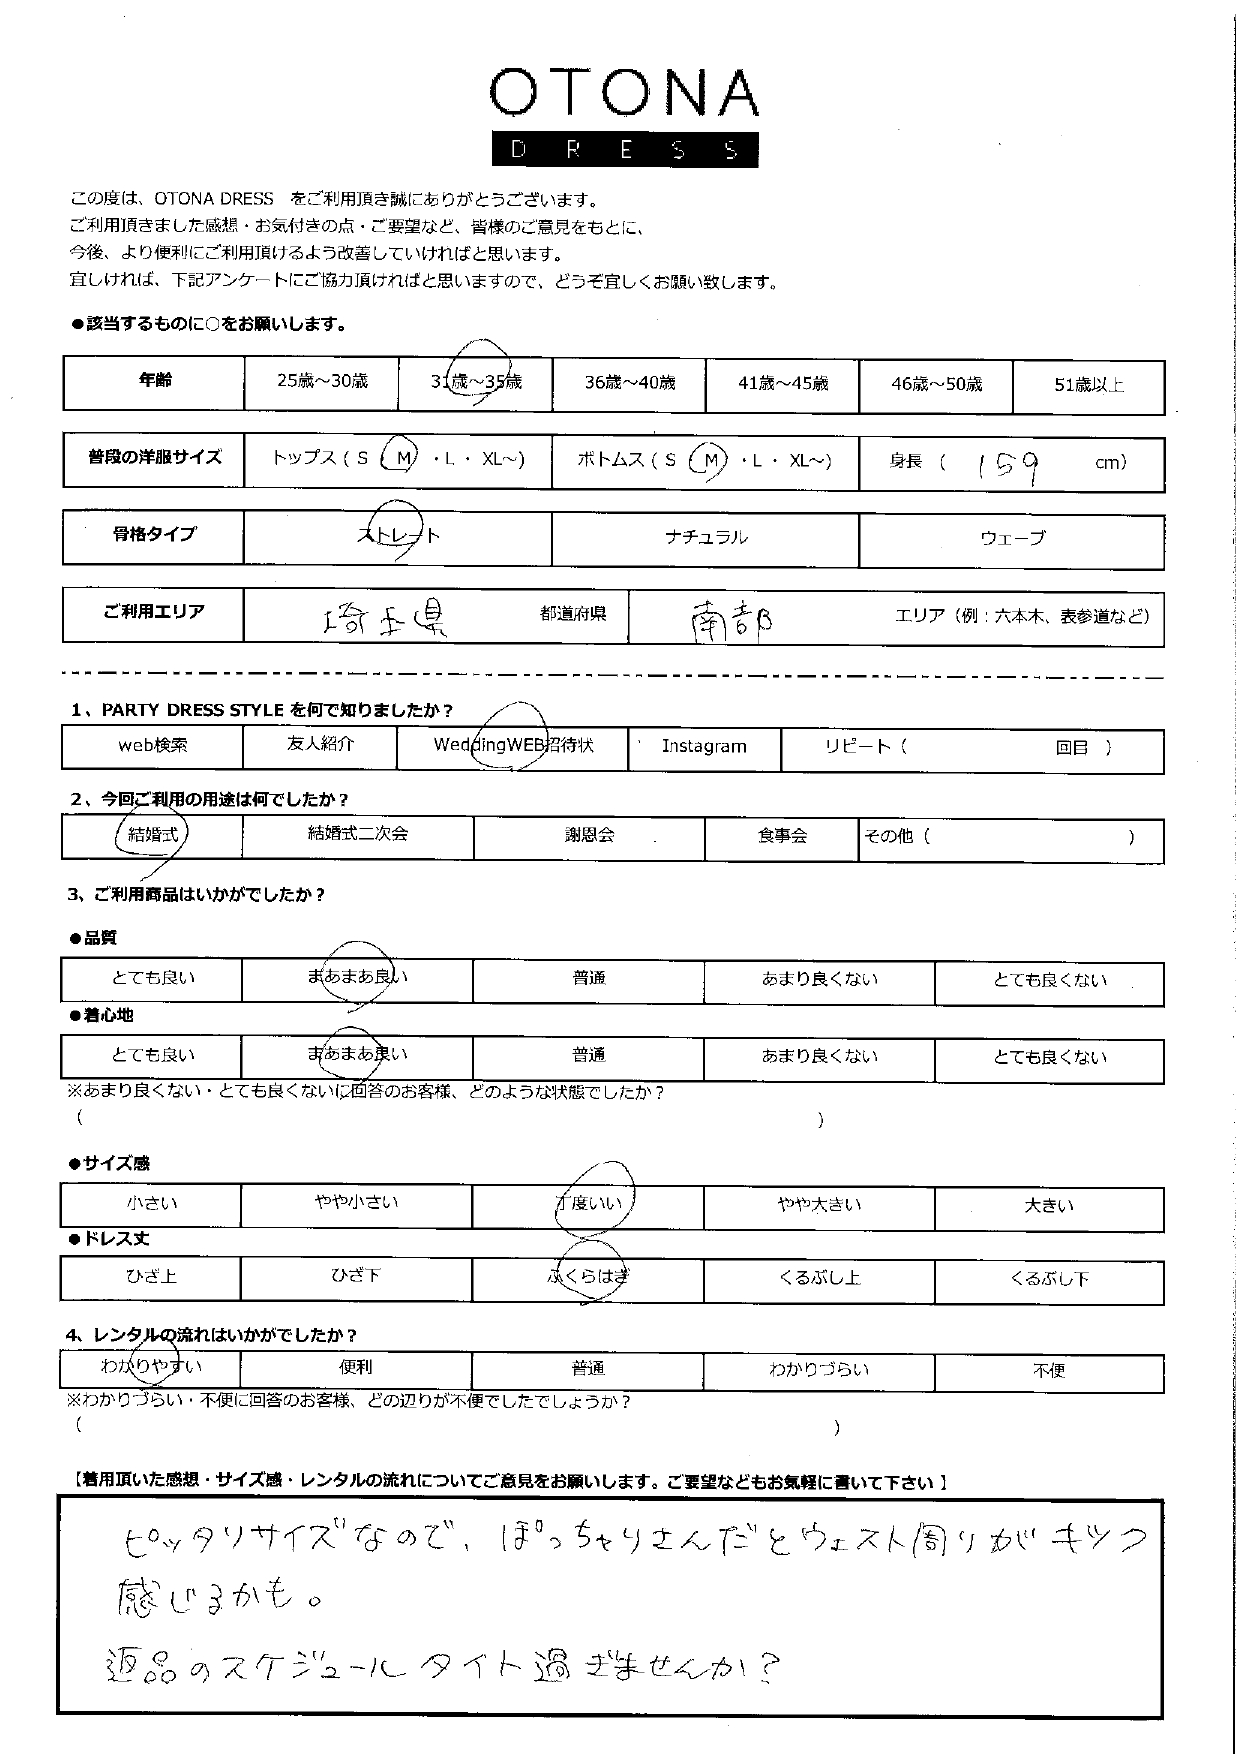 OTONA
DRESS
この度は、OTONA DRESS をご利用頂き誠にありがとうございます。
ご利用頂きました感想・お気付きの点・ご要望など、皆様のご意見をもとに、
今後、より便利にご利用頂けるよう改善していければと思います。
宜しければ、下記アンケートにご協力頂ければと思いますので、どうぞ宜しくお願い致します。
●該当するものに○をお願いします。
年齢 25歳～30歳 31歳～35歳 36歳～40歳 41歳～45歳 46歳～50歳 51歳以上
普段の洋服サイズ トップス（ S M ・L ・ XL～） ボトムス（ S M ・L ・ XL～） 身長 （ 159 cm）
骨格タイプ ストレート ナチュラル ウェーブ
ご利用エリア 埼玉県 都道府県 南部 エリア（例：六本木、表参道など）
1、PARTY DRESS STYLE を何で知りましたか？
web検索 友人紹介 WeddingWEB招待状 Instagram リピート（ 回目 ）
2、今回ご利用の用途は何でしたか？
結婚式 結婚式二次会 謝恩会 食事会 その他（ ）
3、ご利用商品はいかがでしたか？
●品質
とても良い まあまあ良い 普通 あまり良くない とても良くない
●着心地
とても良い まあまあ良い 普通 あまり良くない とても良くない
※あまり良くない・とても良くないに回答のお客様、どのような状態でしたか？
（ ）
●サイズ感
小さい やや小さい 丁度いい やや大きい 大きい
●ドレス丈
ひざ上 ひざ下 ふくらはぎ くるぶし上 くるぶし下
4、レンタルの流れはいかがでしたか？
わかりやすい 便利 普通 わかりづらい 不便
※わかりづらい・不便に回答のお客様、どの辺りが不便でしたでしょうか？
（ ）
【着用頂いた感想・サイズ感・レンタルの流れについてご意見をお願いします。ご要望などもお気軽に書いて下さい】
ピッタリサイズなので、ぽっちゃりさんだとウェスト周りがキツク
感じるかも。
返品のスケジュールタイト過ぎませんか？